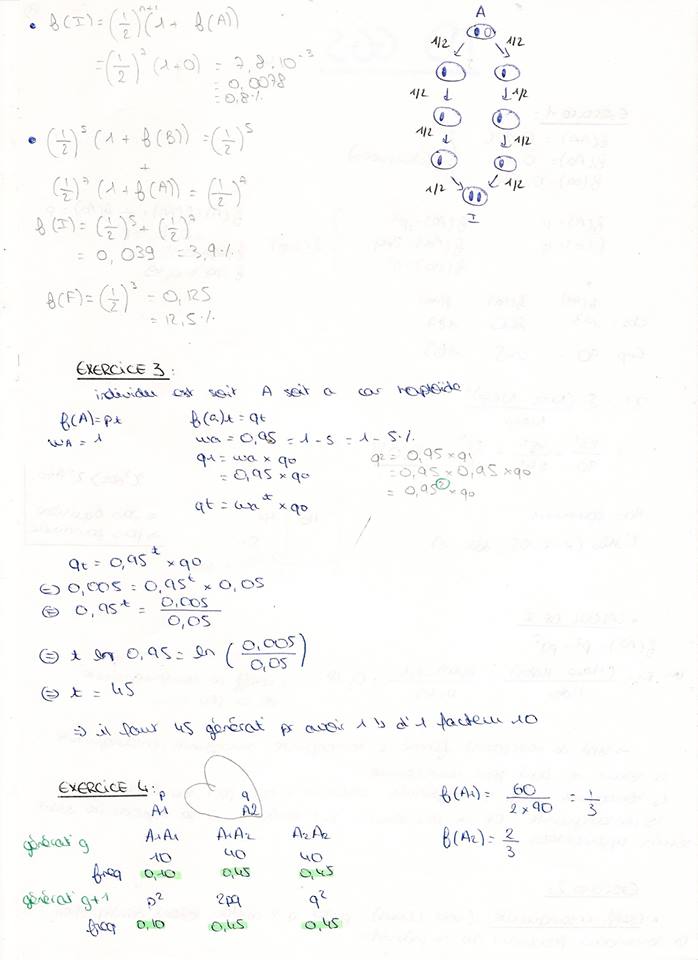 • f(I) = (1/2)^(n+1) (1 + f(A))
= (1/2)^7 (1+0) = 7,8.10^-3
= 0,0078
= 0,8 %
A
1/2 1/2
1/2 1/2
1/2 1/2
1/2 1/2
I
• (1/2)^5 (1 + f(B)) = (1/2)^5
+
(1/2)^7 (1 + f(A)) = (1/2)^7
f(I) = (1/2)^5 + (1/2)^7
= 0,039 = 3,9 %
f(F) = (1/2)^3 = 0,125
= 12,5 %
EXERCICE 3 :
individu est soit A soit a car haploïde
f(A) = pt f(a)t = qt
wA = 1 wa = 0,95 = 1 - s = 1 - 5 %
q1 = wa x q0 q2 = 0,95 x q1
= 0,95 x q0 = 0,95 x 0,95 x q0
= 0,95^2 x q0
qt = wa^t x q0
qt = 0,95^t x q0
⇔ 0,005 = 0,95^t x 0,05
⇔ 0,95^t = 0,005/0,05
⇔ t ln 0,95 = ln (0,005/0,05)
⇔ t = 45
⇒ il faut 45 générat° pr avoir 1 ↘ d'1 facteur 10
EXERCICE 4 :
p q
A1 A2
générat° g A1A1 A1A2 A2A2
10 40 40
freq 0,10 0,45 0,45
générat° g+1 p² 2pq q²
freq 0,10 0,45 0,45
f(A1) = 60/(2x90) = 1/3
f(A2) = 2/3